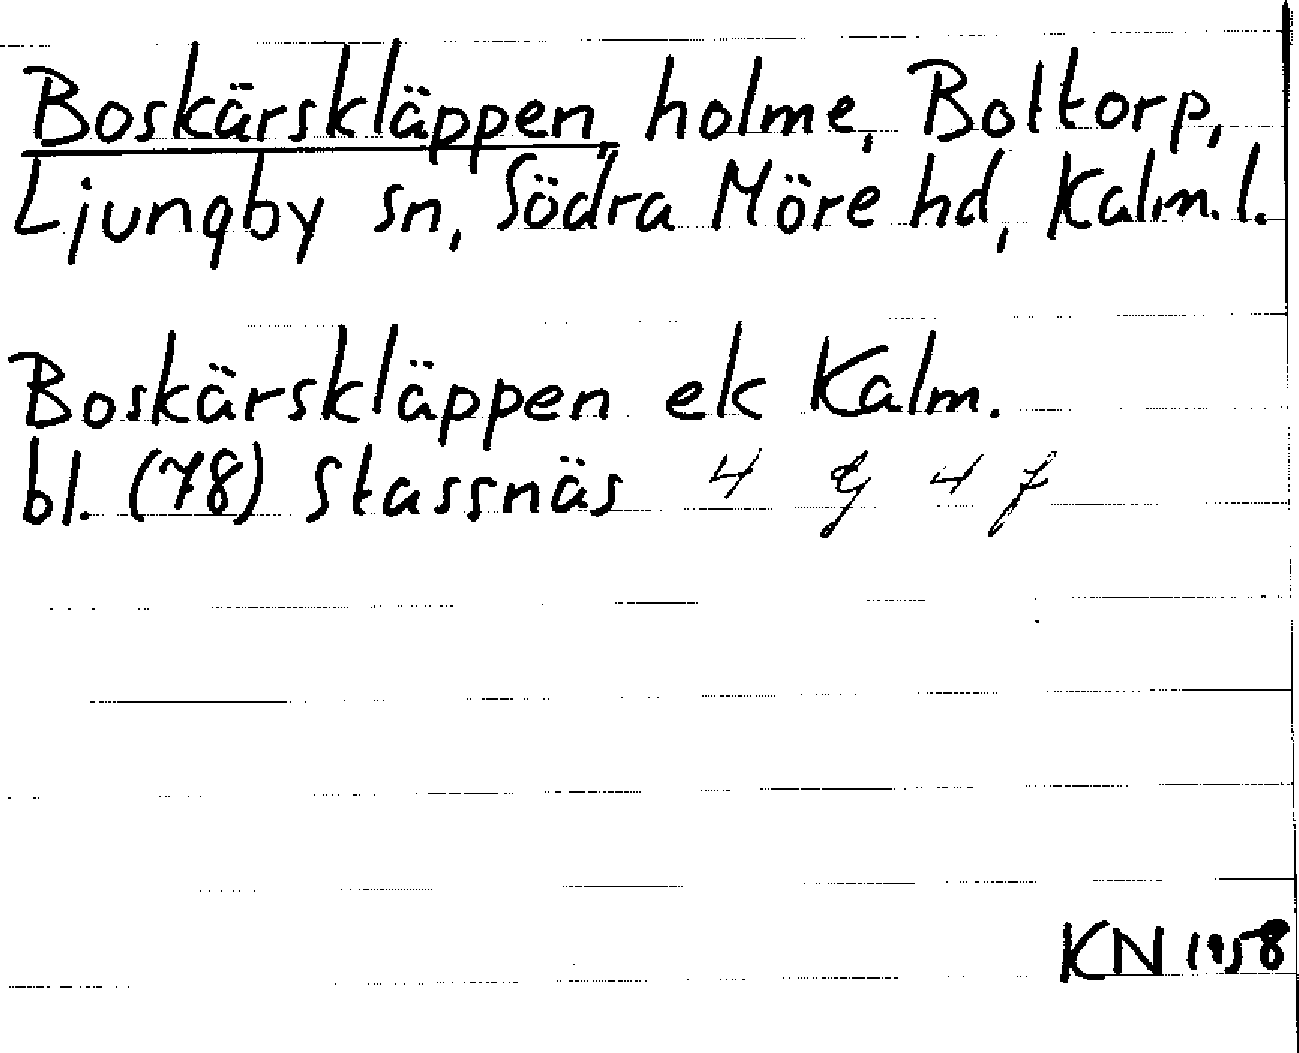 Boskärskläppen, holme, Boltorp,
Ljungby sn, Södra Möre hd, Kalm. l.
Boskärskläppen ek Kalm.
bl. (78) Stassnäs 4 g 4 f
KN 1958